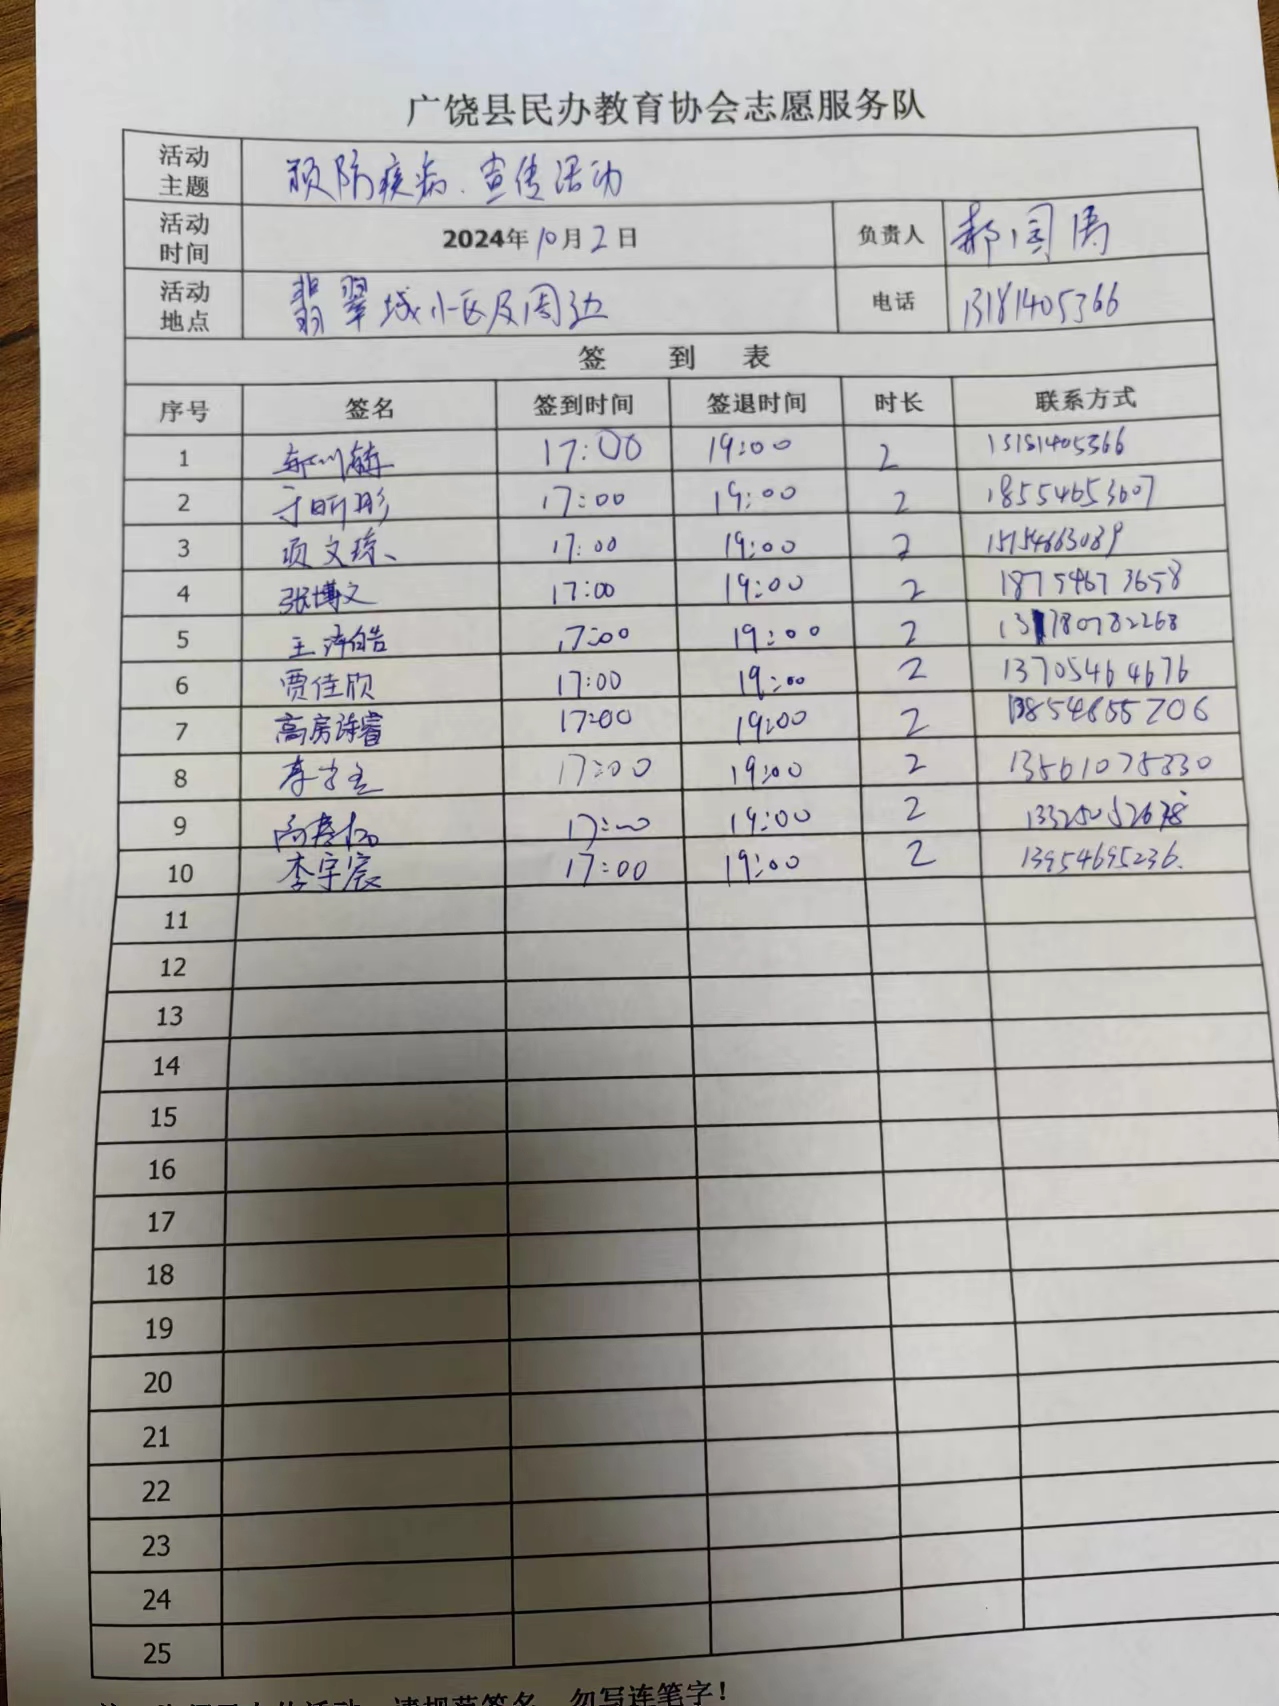 广饶县民办教育协会志愿服务队
活动主题 预防疾病、宣传活动
活动时间 2024年10月2日 负责人 郝国
活动地点 翡翠城小区及周边 电话 13181405366
签 到 表
序号 签名 签到时间 签退时间 时长 联系方式
1 17:00 19:00 2 13181405366
2 于昕彤 17:00 19:00 2 18554653607
3 项文琼 17:00 19:00 2 15154663089
4 张博文 17:00 19:00 2 18754673658
5 王浩皓 17:00 19:00 2 13780782268
6 贾佳欣 17:00 19:00 2 13705464676
7 高房诗睿 17:00 19:00 2 13854655206
8 17:00 19:00 2 13561075330
9 17:00 19:00 2
10 李宇宸 17:00 19:00 2 13954695236.
11
12
13
14
15
16
17
18
19
20
21
22
23
24
25
请规范签名，勿写连笔字！